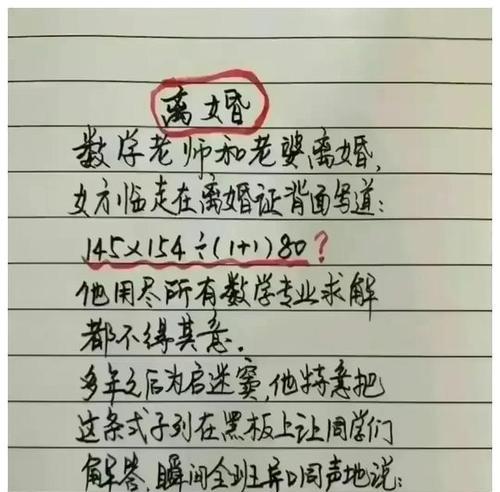 离婚
数学老师和老婆离婚，
女方临走在离婚证背面写道：
145×154÷(1+1)80？
他用尽所有数学专业求解
都不得其意.
多年之后为启迷窦,他特意把
这条式子列在黑板上让同学们
解答,瞬间全班异口同声地说：